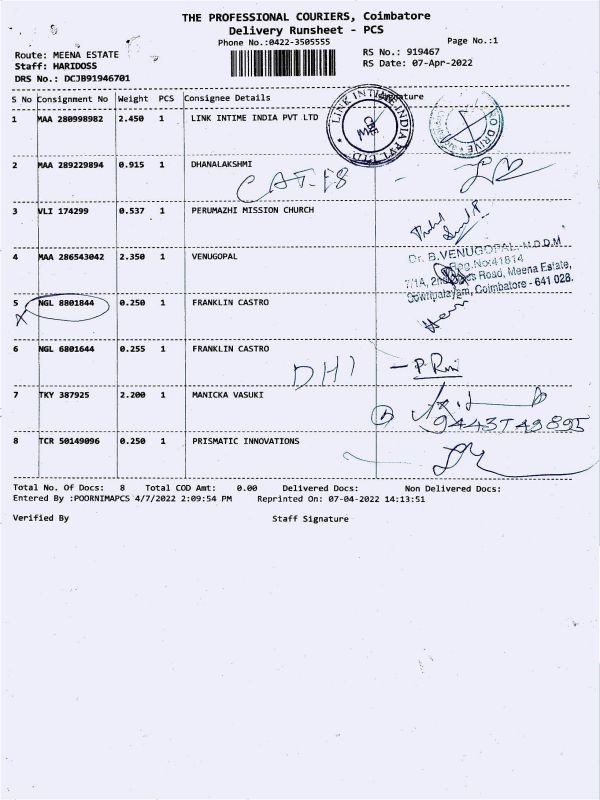 THE PROFESSIONAL COURIERS, Coimbatore
Delivery Runsheet - PCS
Phone No.:0422-3505555 Page No.:1
Route: MEENA ESTATE RS No.: 919467
Staff: HARIDOSS RS Date: 07-Apr-2022
DRS No.: DCJB91946701
S No Consignment No Weight PCS Consignee Details Signature
1 MAA 280998982 2.450 1 LINK INTIME INDIA PVT LTD
LINK INTIME INDIA PVT LTD
2 MAA 289229894 0.915 1 DHANALAKSHMI
3 VLI 174299 0.537 1 PERUMAZHI MISSION CHURCH
4 MAA 286543042 2.350 1 VENUGOPAL
Dr. B.VENUGOPAL, M.D.D.M
Reg.No:41814
Road, Meena Estate,
Sowripalayam, Coimbatore - 641 028.
5 NGL 8801844 0.250 1 FRANKLIN CASTRO
6 NGL 6801644 0.255 1 FRANKLIN CASTRO
7 TKY 387925 2.200 1 MANICKA VASUKI
8 TCR 50149096 0.250 1 PRISMATIC INNOVATIONS
Total No. Of Docs: 8 Total COD Amt: 0.00 Delivered Docs: Non Delivered Docs:
Entered By :POORNIMAPCS 4/7/2022 2:09:54 PM Reprinted On: 07-04-2022 14:13:51
Verified By Staff Signature